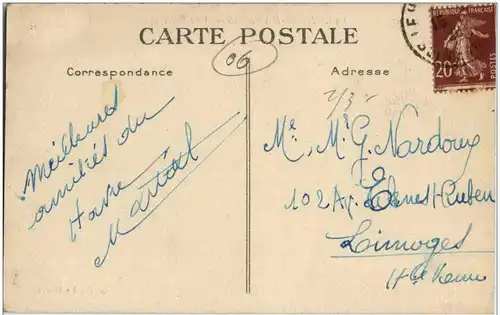 CARTE POSTALE
06
Correspondance
Adresse
RÉPUBLIQUE FRANÇAISE
20c
POSTES
Meilleures
amitiés du
Havre
Martial
2/3
Me, Mr G. Nardoux
102 Av. Ernest Ruben
Limoges
Hte Vienne